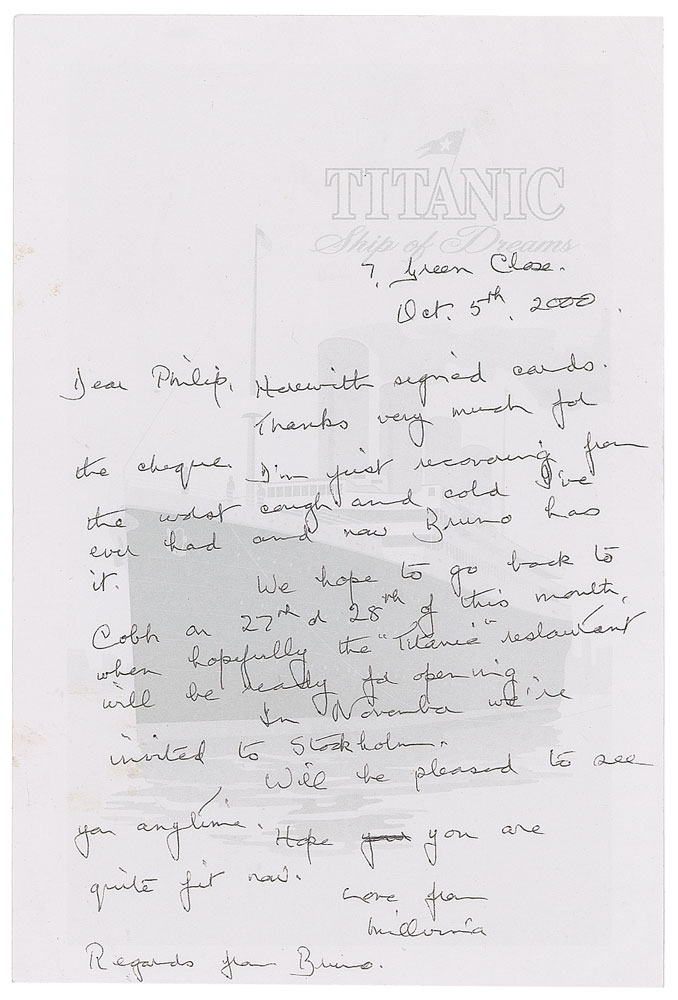 TITANIC
Ship of Dreams
7, Green Close.
Oct. 5th, 2000.
Dear Philip, Herewith signed cards.
Thanks very much for
the cheque. I'm just recovering from
the worst cough and cold I've
ever had and now Bruno has
it. We hope to go back to
Cobh on 27th or 28th of this month,
when hopefully the "Titanic" restaurant
will be ready for opening.
In November we're
invited to Stockholm.
Will be pleased to see
you anytime. Hope you you are
quite fit now.
Love from
Millvina
Regards from Bruno.